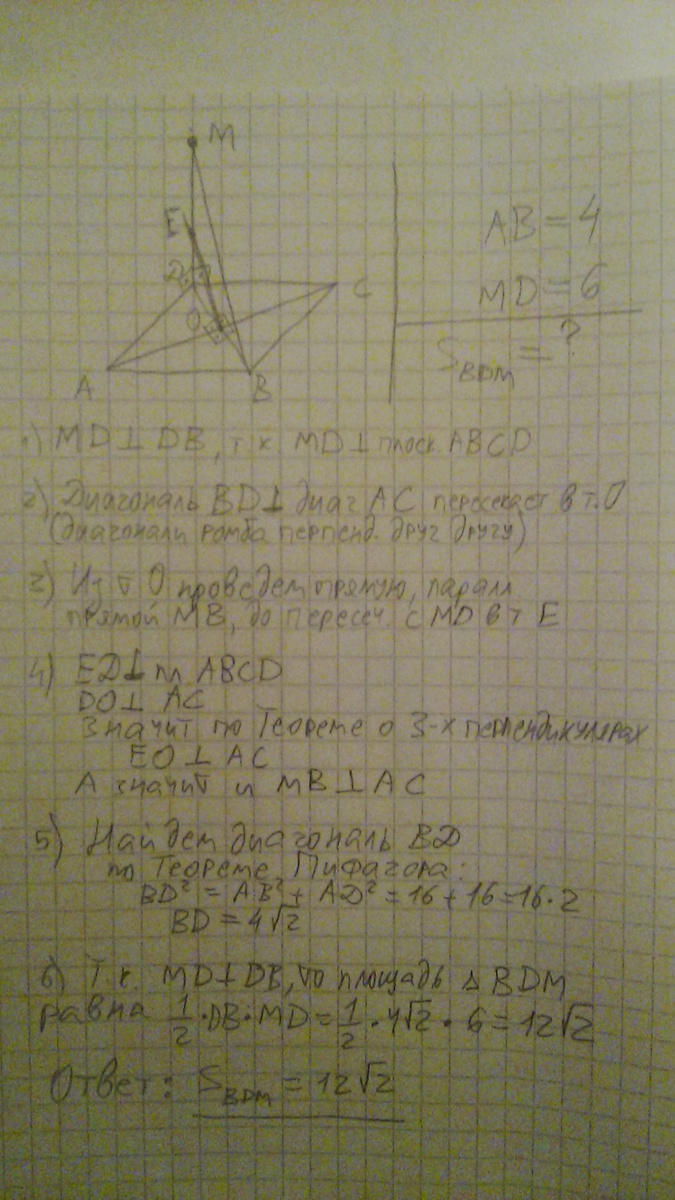 M
E
D
C
O
A
B
AB = 4
MD = 6
S BDM = ?
1) MD ⊥ DB, т.к. MD ⊥ плоск. ABCD
2) Диагональ BD ⊥ диаг AC пересекает в т. O
(диагонали ромба перпенд. друг другу)
3) Из т O проведем прямую, паралл
прямой MB, до пересеч. с MD в т E
4) ED ⊥ пл ABCD
DO ⊥ AC
Значит по Теореме о 3-х перпендикулярах
EO ⊥ AC
А значит и MB ⊥ AC
5) Найдем диагональ BD
по Теореме Пифагора:
BD² = AB² + AD² = 16 + 16 = 16 · 2
BD = 4√2
6) Т.к. MD ⊥ DB, то площадь △ BDM
равна 1/2 · DB · MD = 1/2 · 4√2 · 6 = 12√2
Ответ: S BDM = 12√2